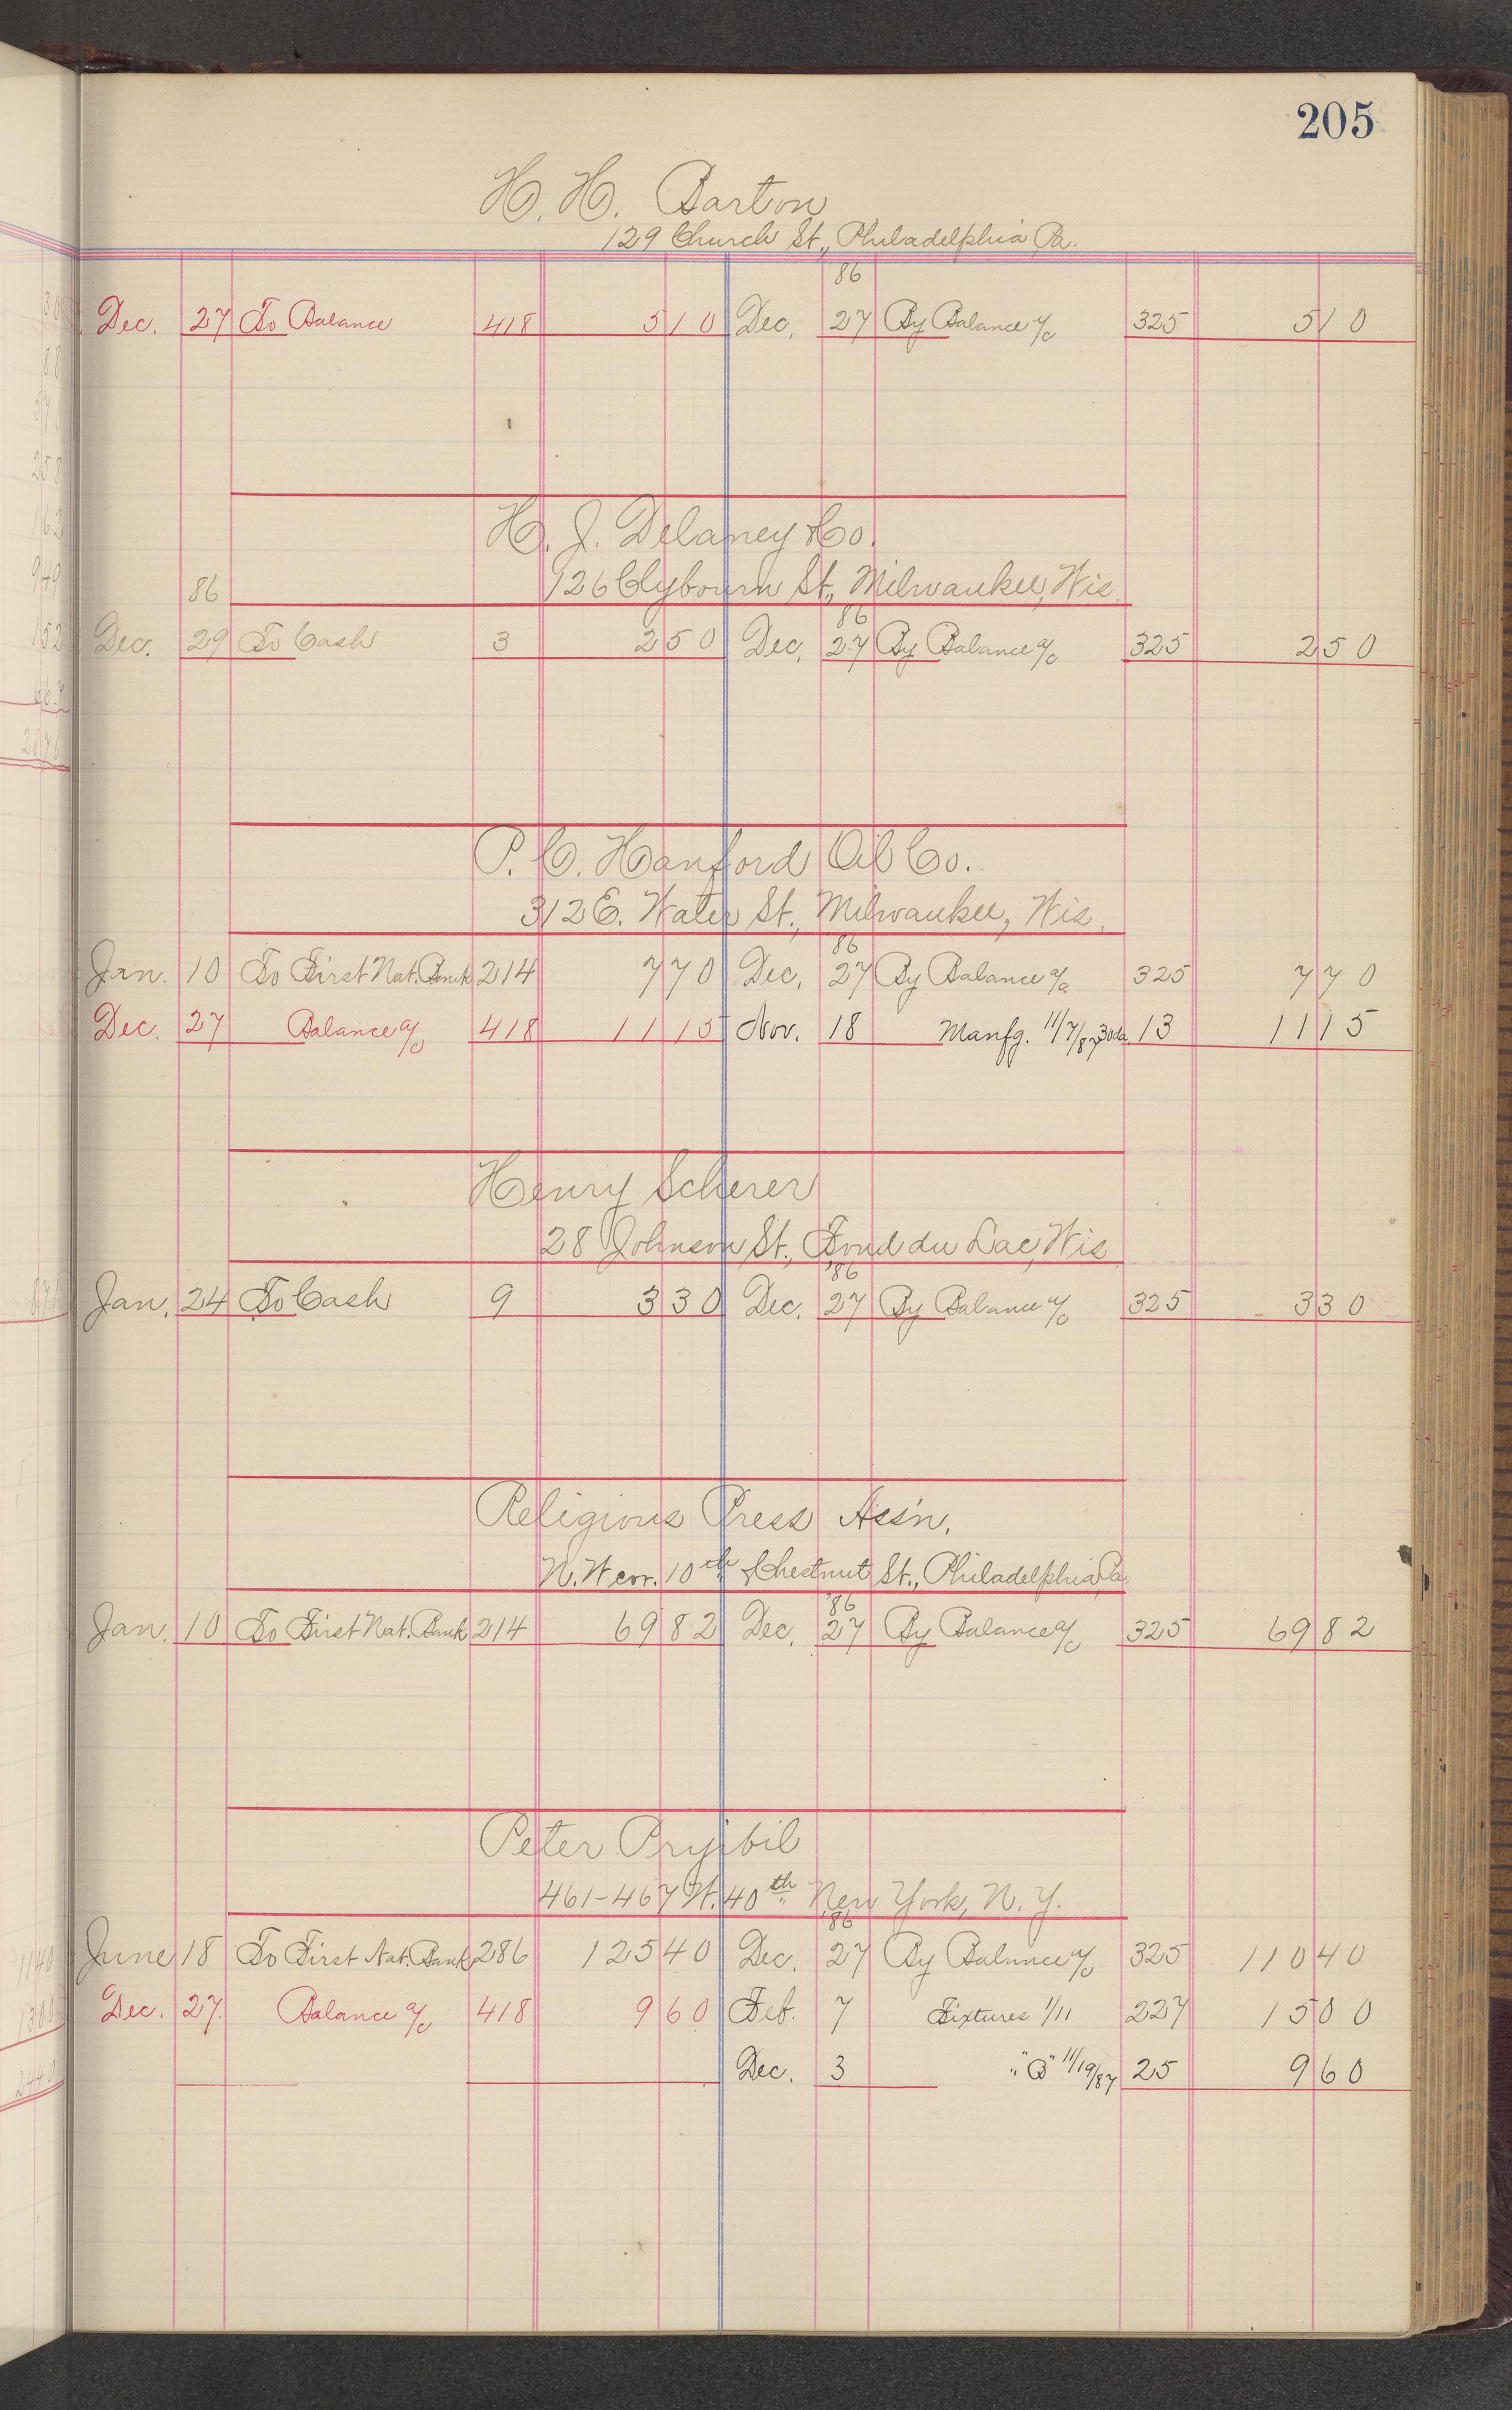 205
H. H. Barton
129 Church St., Philadelphia Pa.
86
Dec. 27 To Balance 418 5 10 Dec. 27 By Balance a/c 325 5 10
H. J. Delaney & Co.
126 Clybourn St., Milwaukee, Wis.
86 86
Dec. 29 To Cash 3 2 50 Dec. 27 By Balance a/c 325 2 50
P. C. Hanford Oil Co.
312 E. Water St., Milwaukee, Wis.
86
Jan. 10 To First Nat. Bank 214 7 70 Dec. 27 By Balance a/c 325 7 70
Dec. 27 Balance a/c 418 11 15 Nov. 18 Manfg. 11/7/87 30da. 13 11 15
Henry Scherer
28 Johnson St., Fond du Lac, Wis
'86
Jan. 24 To Cash 9 3 30 Dec. 27 By Balance a/c 325 3 30
Religious Press Ass'n.
N.W cor. 10th & Chestnut St., Philadelphia, Pa.
'86
Jan. 10 To First Nat. Bank 214 69 82 Dec. 27 By Balance a/c 325 69 82
Peter Pryibil
461-467 W. 40th New York, N. Y.
'86
June 18 To First Nat. Bank 286 125 40 Dec. 27 By Balance a/c 325 110 40
Dec. 27. Balance a/c 418 9 60 Feb. 7 Fixtures 1/11 227 15 00
Dec. 3 "B" 11/19/87 25 9 60